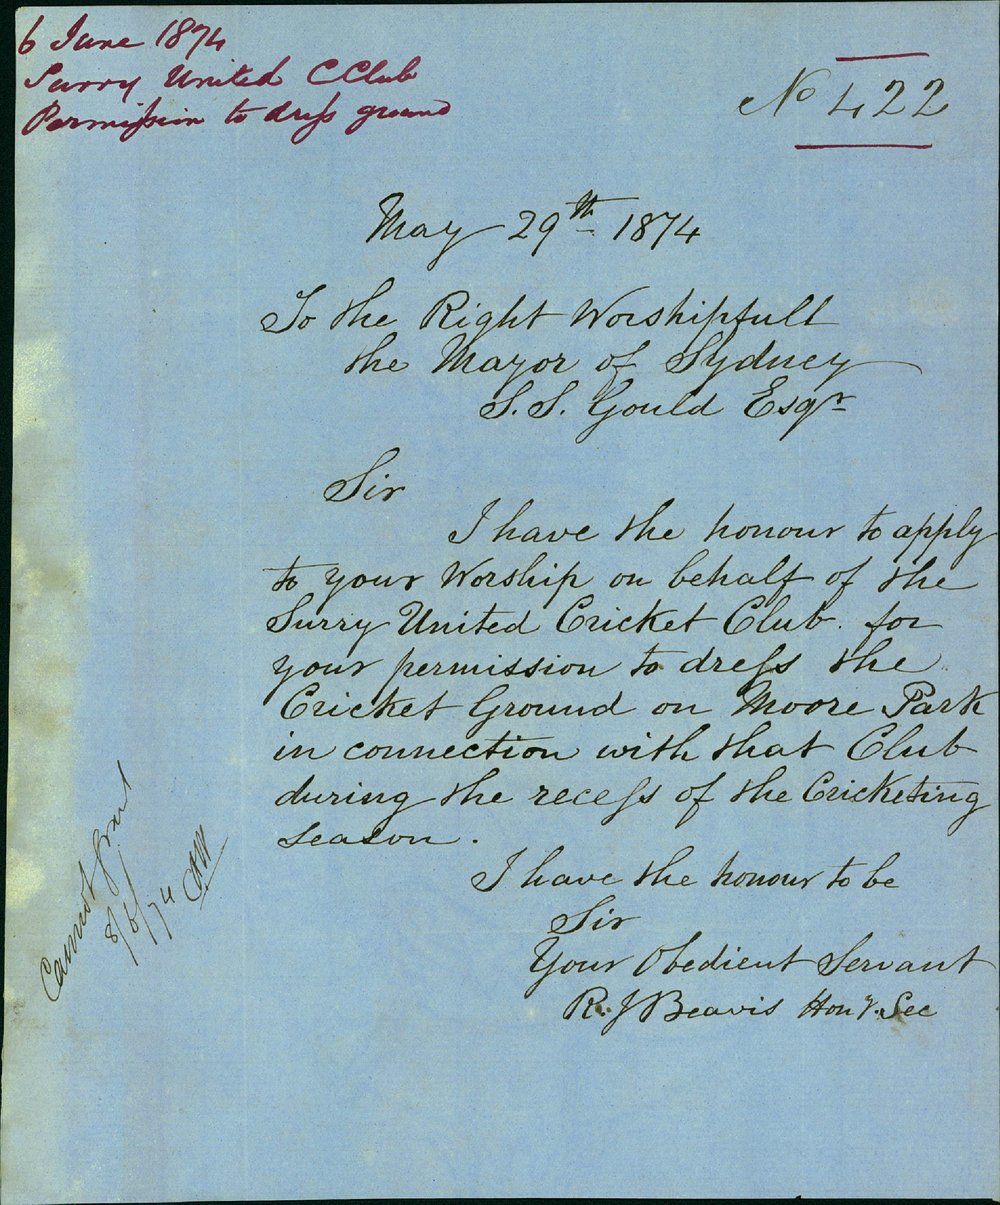 6 June 1874
Surry United C Club
Permission to dress ground
No 422
May 29th 1874
To the Right Worshipfull
the Mayor of Sydney
S. S. Gould Esqr
Sir
I have the honour to apply
to your Worship on behalf of the
Surry United Cricket Club. for
your permission to dress the
Cricket Ground on Moore Park
in connection with that Club
during the recess of the Cricketing
season.
I have the honour to be
Sir
Your Obedient Servant
R. J Beavis Hony. Sec
Cannot grant
8/6/74